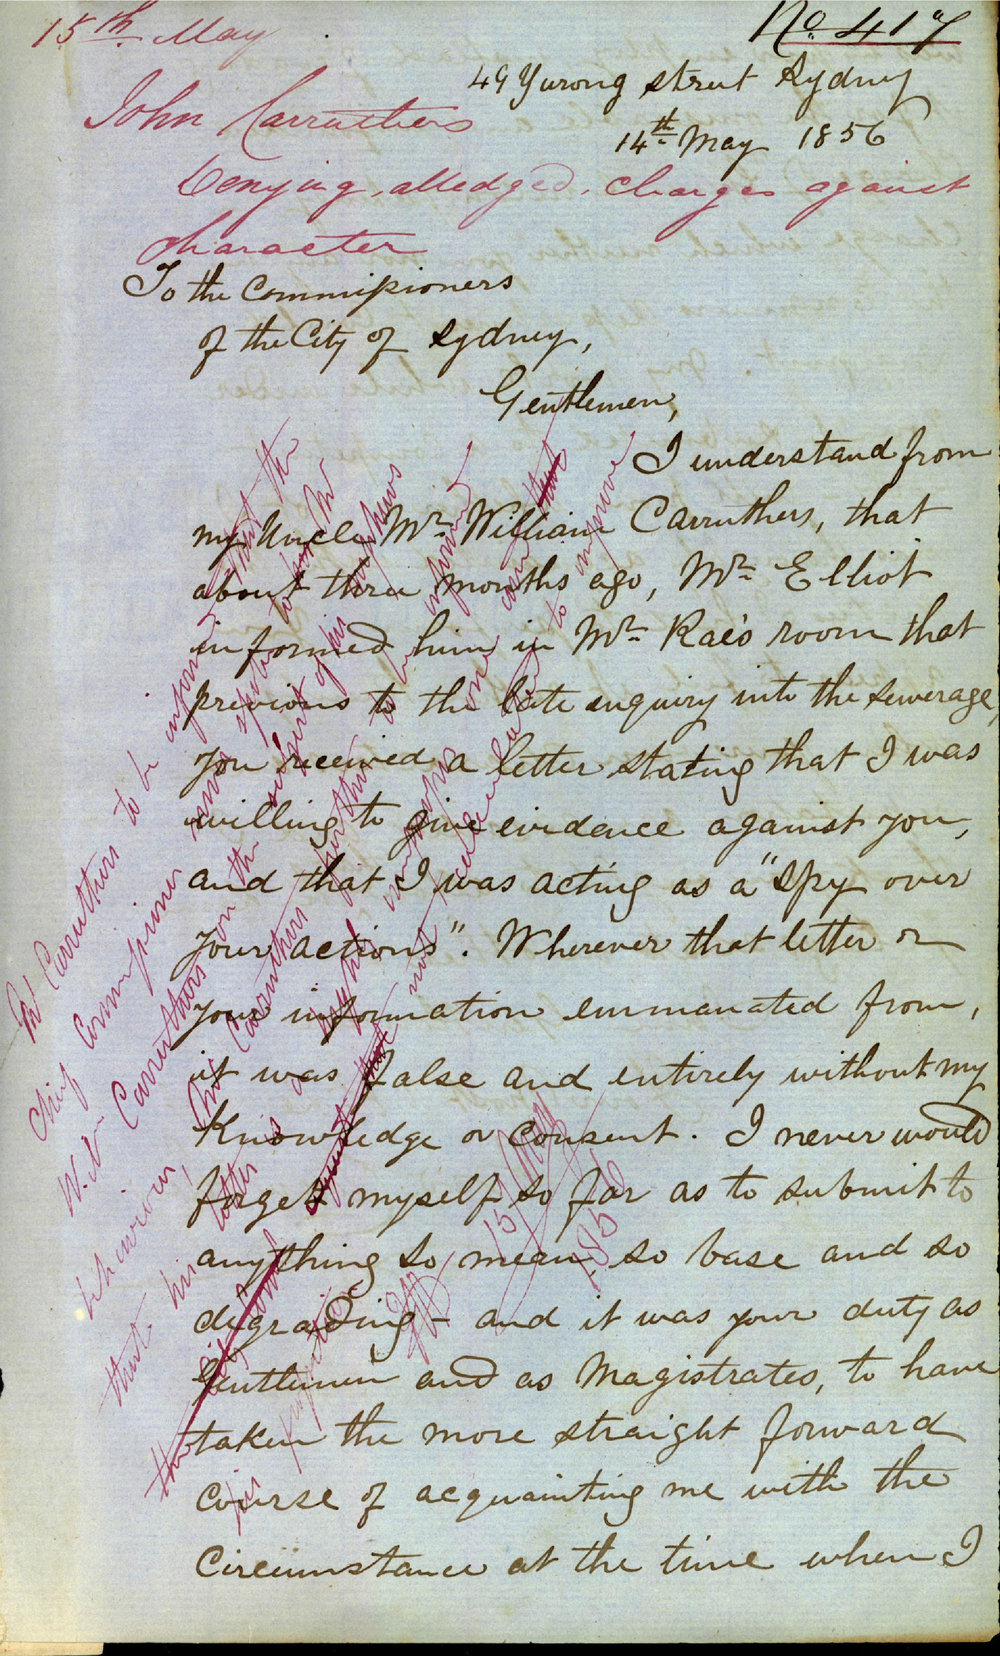 15th May
No 417
49 Yurong Street Sydney
14th May 1856
John Carruthers
Denying alledged charges against
character
To the Commissioners
of the City of Sydney,
Gentlemen,
I understand from
my Uncle Mr William Carruthers, that
about three months ago, Mr Elliot
informed him in Mr Rae's room that
previous to the late enquiry into the sewerage,
you received a letter stating that I was
willing to give evidence against you,
and that I was acting as a "spy over
your actions". Wherever that letter or
your information emmanated from,
it was false and entirely without my
Knowledge or Consent. I never would
forget myself so far as to submit to
anything so mean so base and so
degrading - and it was your duty as
Gentlemen and as Magistrates, to have
taken the more straight forward
course of acquainting me with the
Circumstance at the time when I
Mr Carruthers to be informed that the
Chief Commissioner never spoke to him Mr
Wm Carruthers on the subject of his nephews
behaviour, Mr Carruthers further to be informed
that his letter is a highly improper one and
not calculated to improve
his
15 May
1856